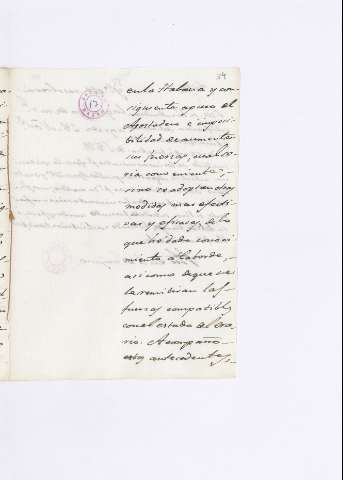 34
en la Habana y con-
siguiente apuro el
Apostadero e imposi-
bilidad de aumentar
sus fuerzas, cual se-
ria conveniente,
sino se adoptan otras
medidas mas efecti-
vas y eficaces, de lo
que he dado conoci-
miento a Laborde,
asi como de que se
le remitiran las
fuerzas compatibles
con el estado del era-
rio. Acompaño
estos antecedentes,